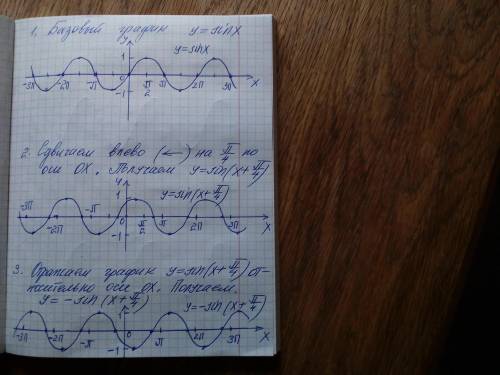 1. Базовый график y = sin x
y
y = sin x
1
-3π -2π -π 0 π/2 π 2π 3π x
-1
2. Сдвигаем влево (←) на π/4 по
оси OX. Получаем y = sin(x + π/4)
y
y = sin(x + π/4)
1
-3π -2π -π 0 π/2 π 2π 3π x
-1
3. Отражаем график y = sin(x + π/4) от-
носительно оси OX. Получаем.
y = -sin(x + π/4)
y = -sin(x + π/4)
1
-3π -2π -π 0 π 2π 3π x
-1